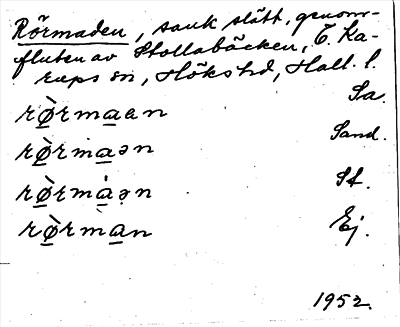 Rörmaden, sank slätt, genom-
fluten av Stollabäcken, Ö. Ka-
rups sn, Höks hd, Hall. l.
rø̀rmaan Sa.
rø̀rmaən Sand.
rø̀rmàən St.
rø̀rm̀an Ej.
1952.